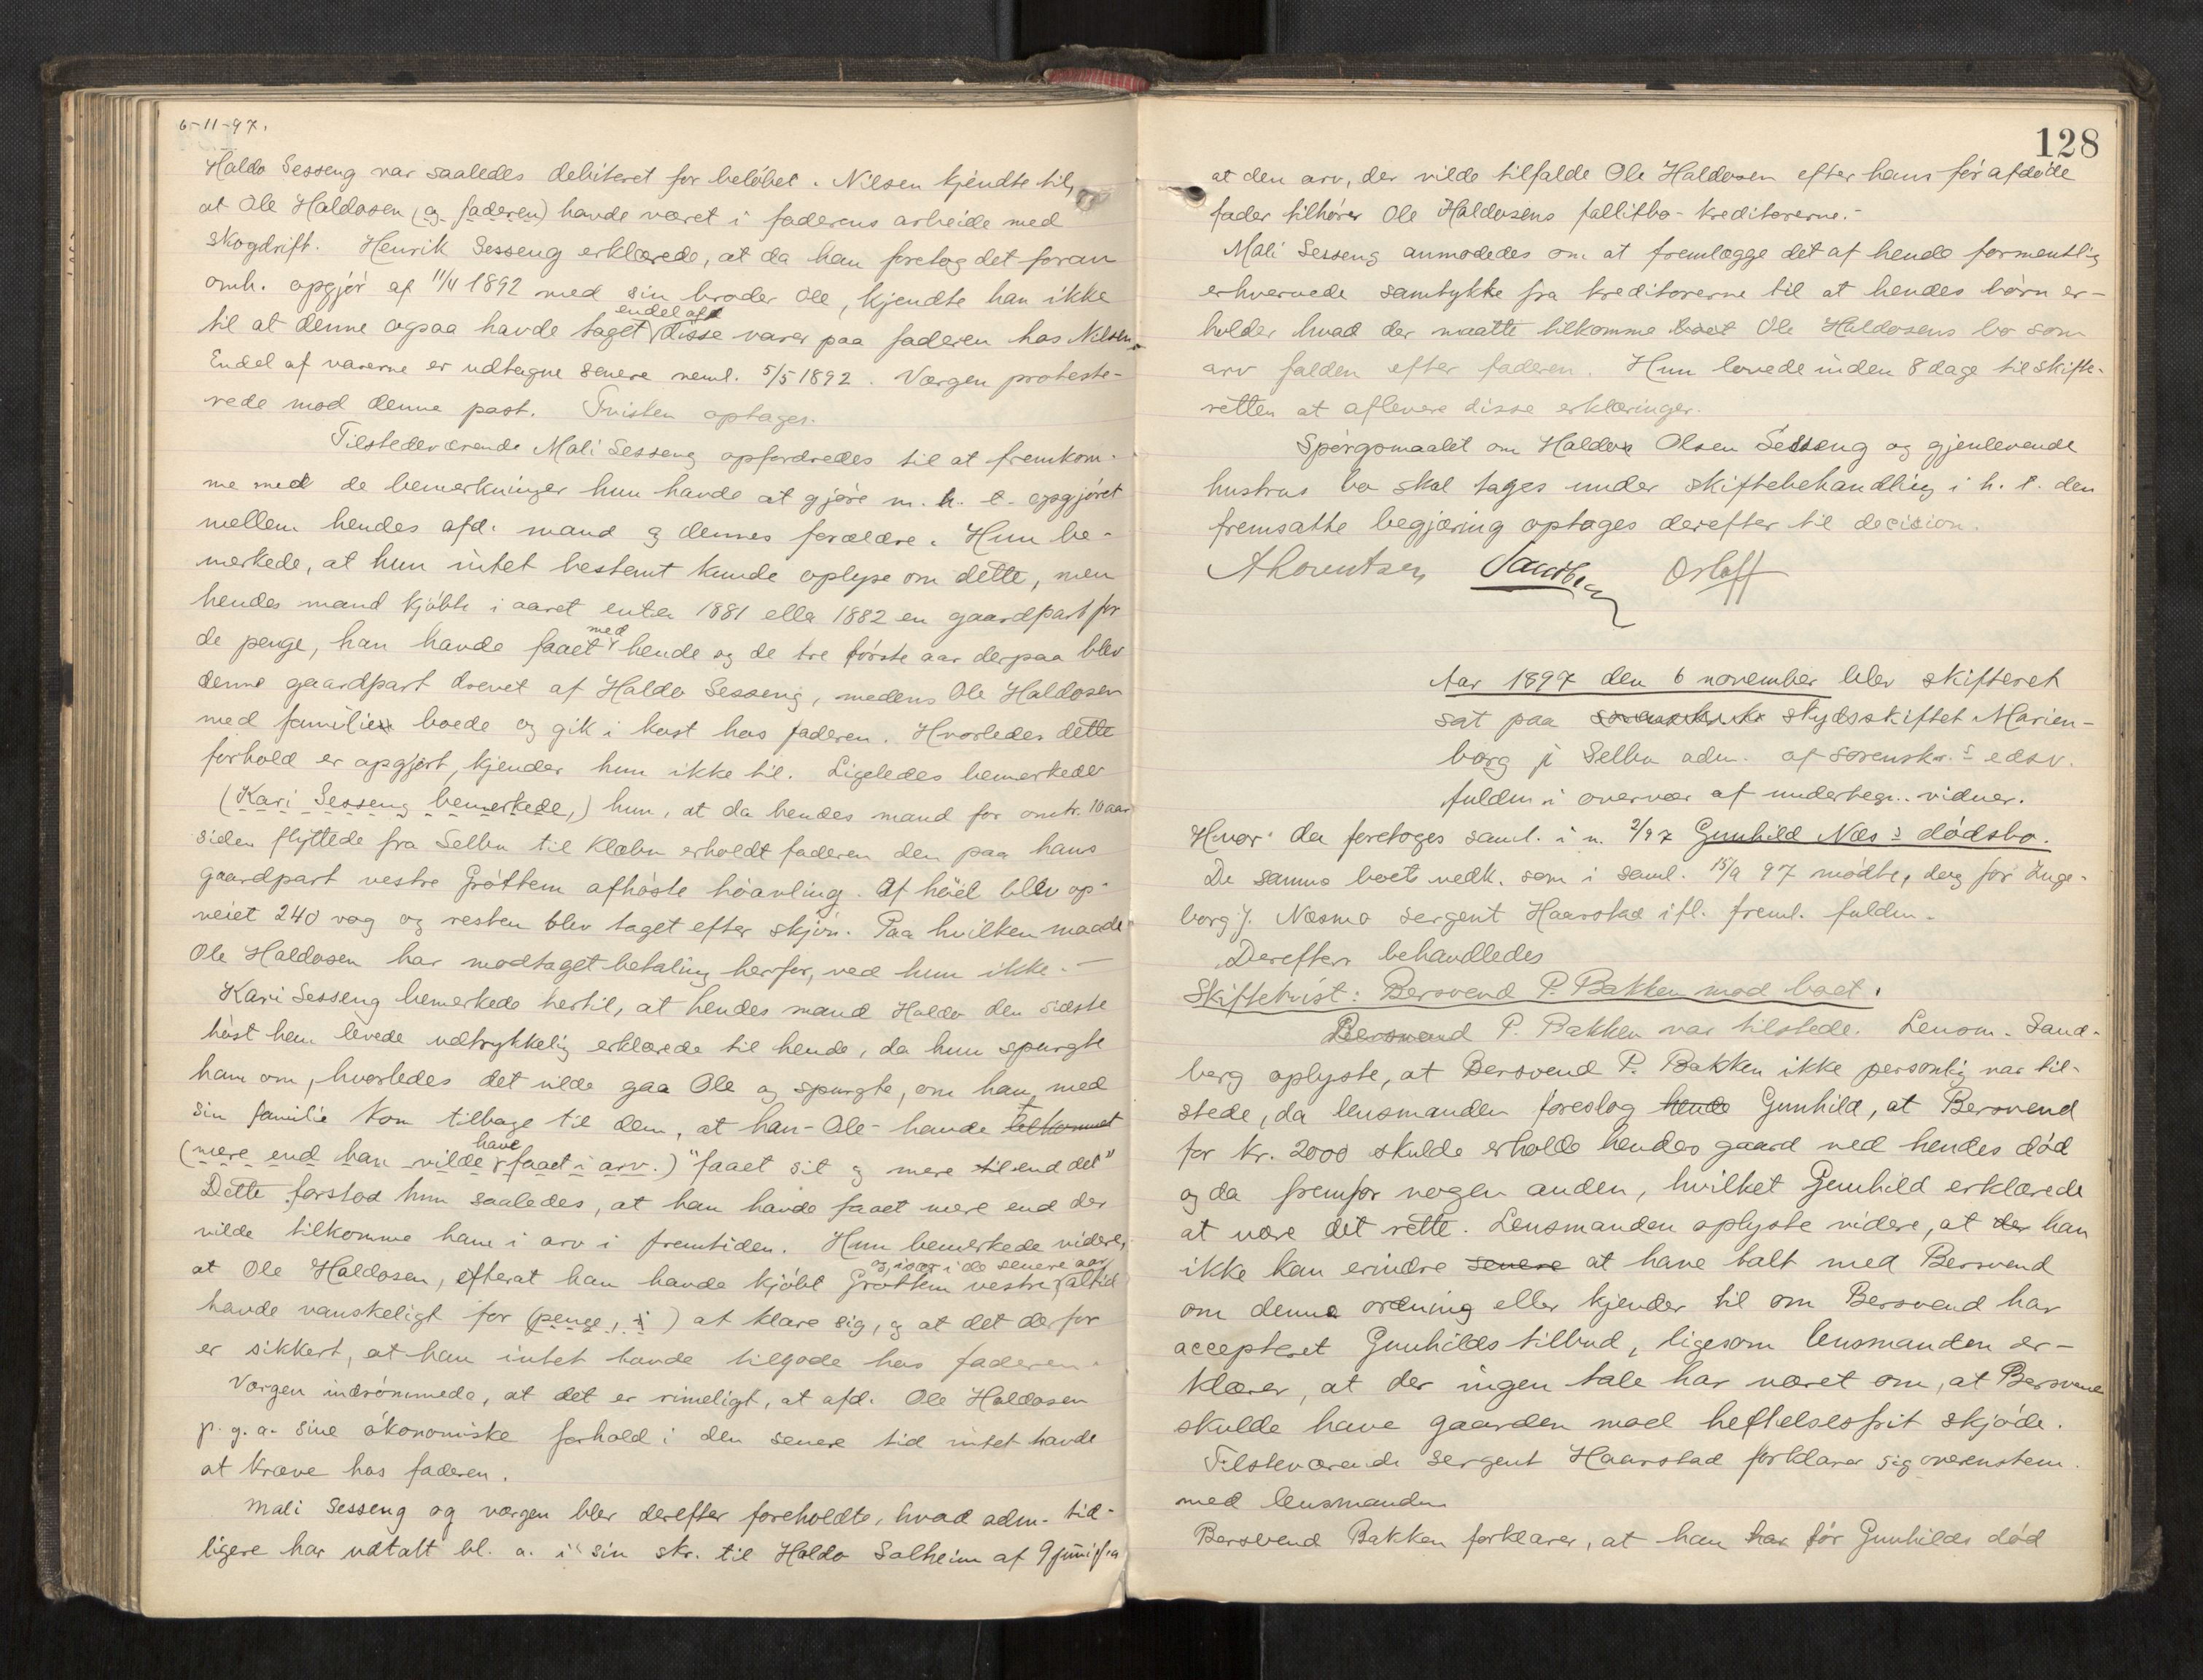 6-11-97.
Haldo Sesseng var saaledes debiteret for beløbet. Nilsen kjendte til,
at Ole Haldosen (og faderen) havde været i faderens arbeide med
skogdrift. Henrik Sesseng erklærede, at da han foretog det foran
omh. opgjør af 11/4 1892 med sin broder Ole, kjendte han ikke
til at denne ogsaa havde taget endel af disse varer paa faderen hos Nilsen.
Endel af varerne er udtagne senere neml. 5/5 1892. Værgen proteste-
rede mod denne post. Tvisten optages.
Tilstedeværende Mali Sesseng opfordredes til at fremkom-
me med de bemerkninger hun havde at gjøre m. h. t. opgjøret
mellem hendes afd. mand og dennes forældre. Hun be-
merkede, at hun intet bestemt kunde oplyse om dette, men
hendes mand kjøbte i aaret enten 1881 eller 1882 en gaardpart for
de penge, han havde faaet med hende og de tre første aar derpaa blev
denne gaardpart drevet af Haldo Sesseng, medens Ole Haldosen
med familien boede og gik i kost hos faderen. Hvorledes dette
forhold er opgjort, kjender hun ikke til. Ligeledes bemerkede
(Kari Sesseng bemerkede,) hun, at da hendes mand for omtr. 10 aar
siden flyttede fra Selbu til Klæbu erholdt faderen den paa hans
gaardpart vestre Grøttem afhøste høavling. Af høiet blev op-
veiet 240 vog og resten blev taget efter skjøn. Paa hvilken maade
Ole Haldosen har modtaget betaling herfor, ved hun ikke. —
Kari Sesseng bemerkede hertil, at hendes mand Haldo den sidste
høst han levede udtrykkelig erklærede til hende, da hun spurgte
ham om, hvorledes det vilde gaa Ole og spurgte, om han med
sin familie kom tilbage til dem, at han - Ole - havde tilkommet
(mere end han vilde have faaet i arv.) "faaet sit og mere til end det"
Dette forstod hun saaledes, at han havde faaet mere end der
vilde tilkomme ham i arv i fremtiden. Hun bemerkede videre,
at Ole Haldosen, efterat han havde kjøbt Grøttem vestre og, især i de senere aar altid
havde vanskeligt for (penge, i) at klare sig, og at det derfor
er sikkert, at han intet havde tilgode hos faderen.
Værgen indrømmede, at det er rimeligt, at afd. Ole Haldosen
p. g. a. sine økonomiske forhold i den senere tid intet havde
at kræve hos faderen.
Mali Sesseng og værgen blev derefter foreholdte, hvad adm. tid-
ligere har udtalt bl. a. i sin skr. til Haldo Solheim af 9 juni f. a.
128
at den arv, der vilde tilfalde Ole Haldosen efter hans før afdøde
fader tilhører Ole Haldosens fallitbo-kreditorerne.-
Mali Sesseng anmodedes om at fremlægge det af hende formentlig
erhvervede samtykke fra kreditorerne til at hendes børn er-
holder hvad der maatte tilkomme boet Ole Haldosens bo som
arv falden efter faderen. Hun lovede inden 8 dage til skifte-
retten at aflevere disse erklæringer.
Spørgsmaalet om Haldo Olsen Sesseng og gjenlevende
hustrus bo skal tages under skiftebehandling i h. t. den
fremsatte begjæring optages derefter til decision.
A Lorentsen Sandberg Orloff
Aar 1897 den 6 november blev skifteret
sat paa skydsskiftet Marien-
borg i Selbu adm. af sorenskr.s edsv.
fuldm i overvær af undertegn. vidner.
Hvor da foretoges saml. i n. 2/97 Gunhild Næss dødsbo.
De samme boet vedk. som i saml. 15/9 97 mødte, dog for Inge-
borg J. Næsmo sergent Haarstad ifl. freml. fuldm.
Derefter behandledes
Skiftetvist: Bersvend P. Bakken mod boet.
Bersvend P. Bakken var tilstede. Lensm. Sand-
berg oplyste, at Bersvend P. Bakken ikke personlig var til-
stede, da lensmanden foreslog hende Gunhild, at Bersvend
for kr. 2000 skulde erholde hendes gaard ved hendes død
og da fremfor nogen anden, hvilket Gunhild erklærede
at være det rette. Lensmanden oplyste videre, at der han
ikke kan erindre senere at have talt med Bersvend
om denne ordning eller kjender til om Bersvend har
accepteret Gunhilds tilbud, ligesom lensmanden er-
klærer, at der ingen tale har været om, at Bersvend
skulde have gaarden med heftelsesfrit skjøde.
Tilsteværende sergent Haarstad forklarer sig overenstem.
med lensmanden
Bersvend Bakken forklarer, at han har før Gunhilds død